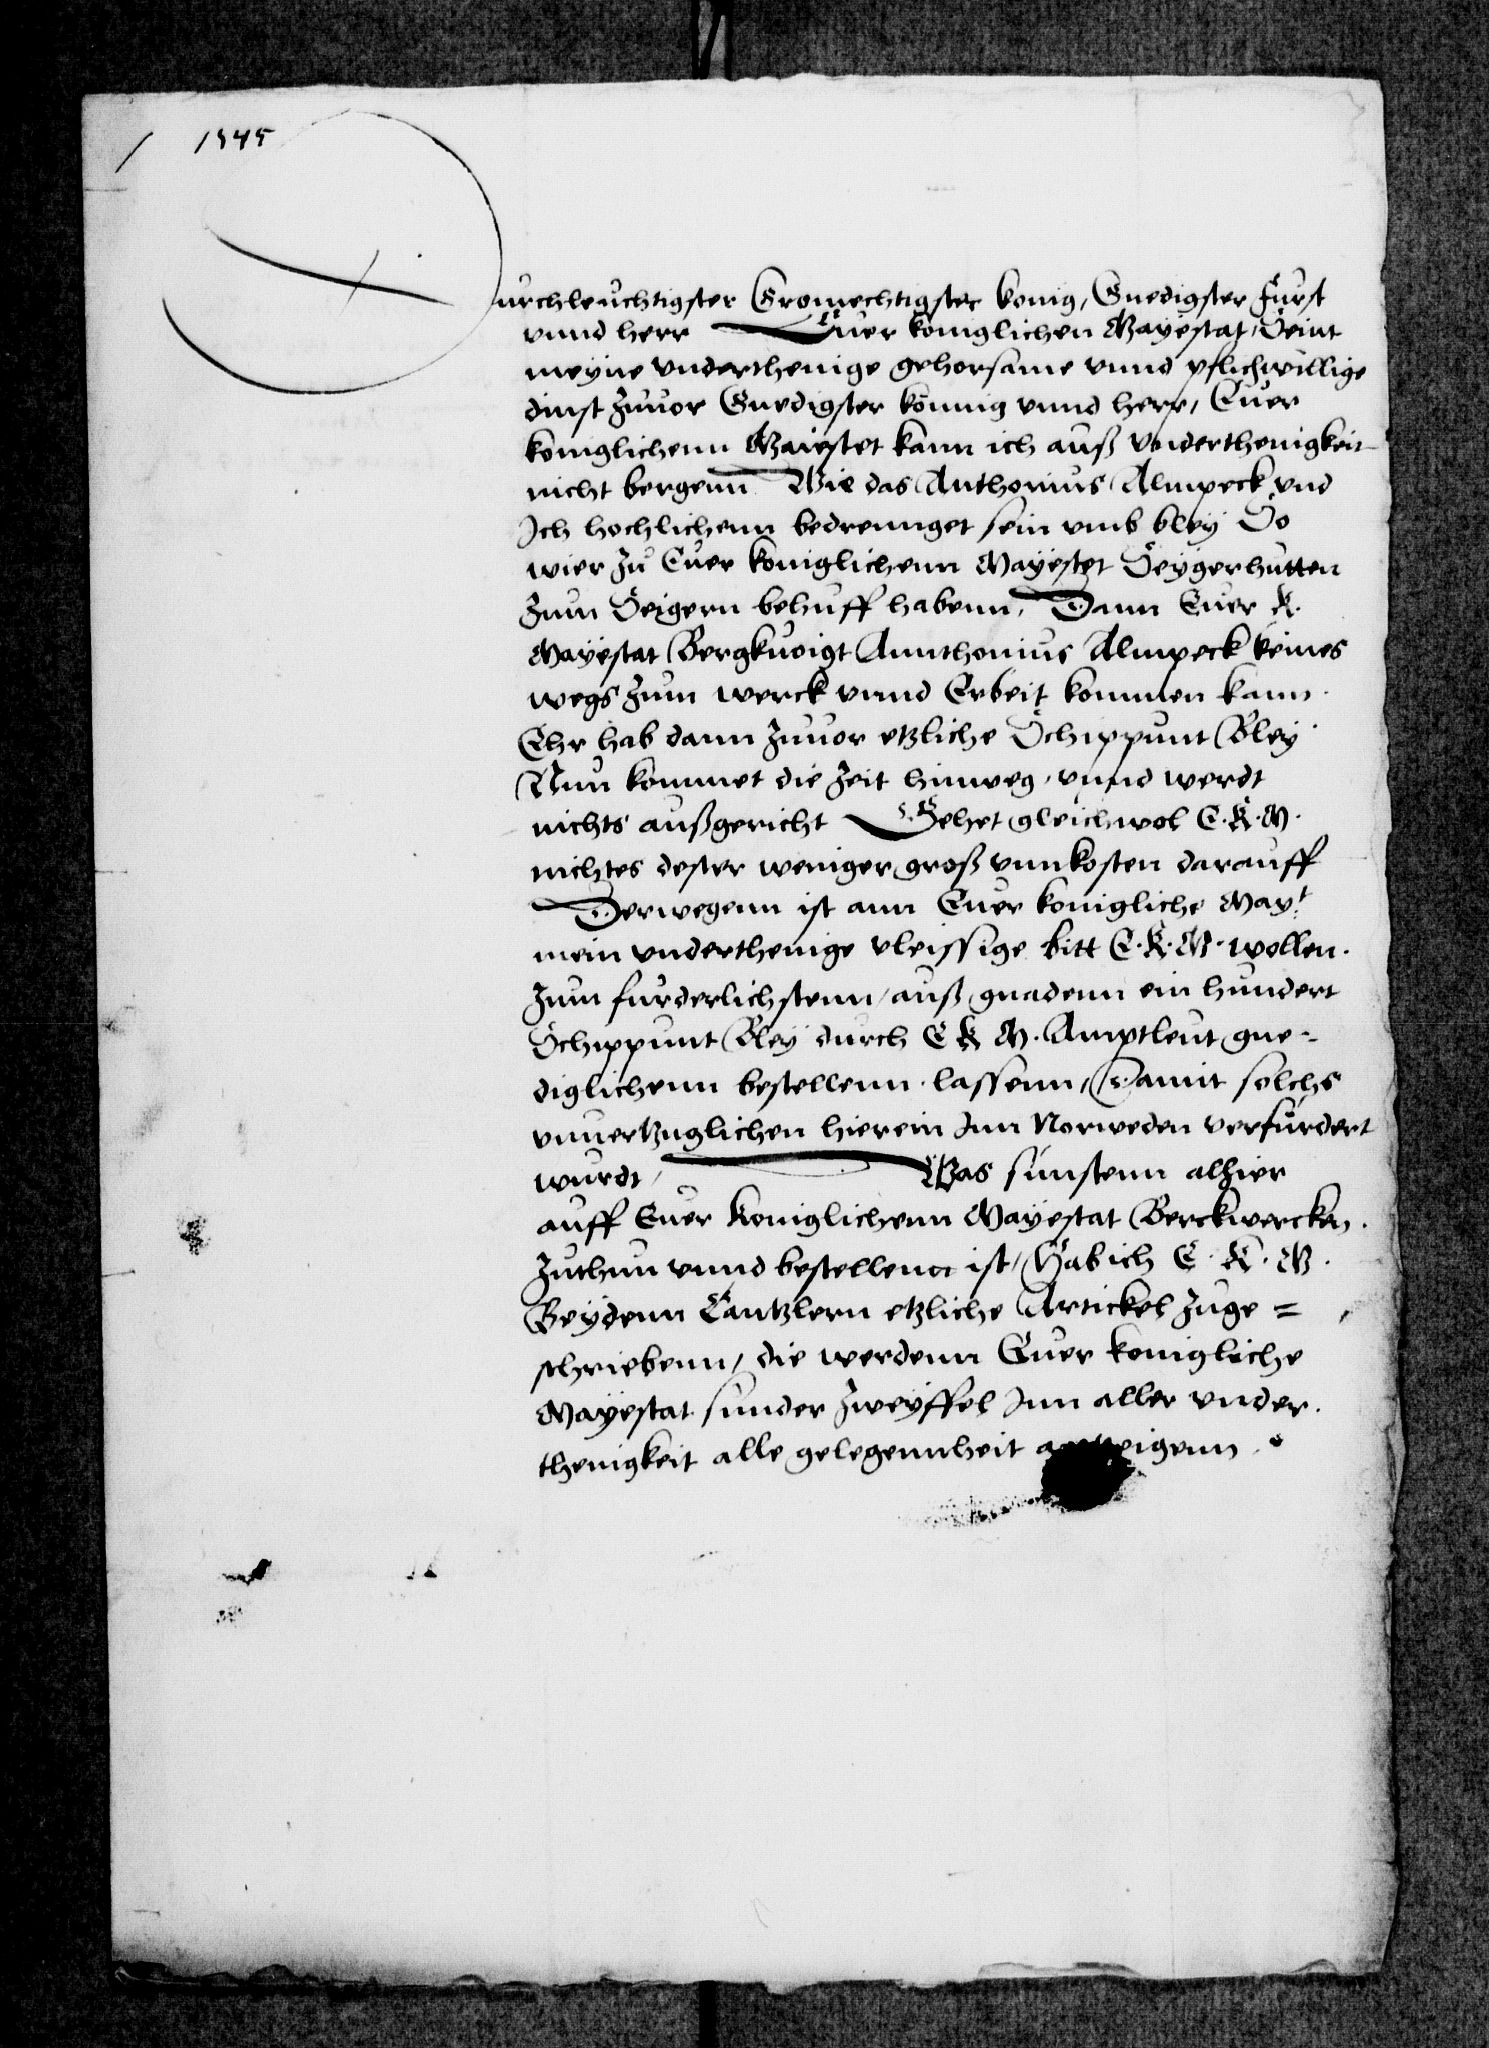 1545
Durchleuchtigster Gromechtigster konig, Gnedigster Furst
vnnd herr Euer koniglichen Mayestat, Seint
meyne vnderthenige gehorsame vnnd pflichwillige
dinst zuuor Gnedigster konnig vnnd herr, Euer
koniglichenn Maiestet kann ich auß vnderthenigkeit
nicht bergenn Wie das Anthonius Almpeck vnd
Ich hochlichenn bedrennget sein vmb bley So
wier zu Euer koniglichenn Mayestet Seygerhutten
zum Seigern behuff habenn, Dann Euer K.
Mayestat Bergkuoigt Annthonius Almpeck keines
wegs zum werck vnnd Erbeit kommen kann.
Ehr hab dann zuuor etzliche Schippunt Bley
Nun kommet die zeit hinweg, vnnd werdt
nichts außgericht Gehet gleichwol E. K. M.
nichtes dester weniger groß vnnkosten darauff
Derwegenn ist ann Euer konigliche Mayt
mein vnderthenige vleissige bitt E. K. M. wollen.
zum furderlichstenn, auß gnadenn ein hundert
Schippunt Bley durch E K M. Amptleut gne-
diglichenn bestellenn lassenn, Damit solchs
vnuertzuglichen hierein Inn Norweden verfurdert
wurdt, Was sunstenn alhier
auff Euer Koniglichenn Mayestat Berckwercken.
zuthun vnnd bestellenn ist, Hab ich E. K. M.
Beydenn Cantzlern etzliche Artickel zuge=
schriebenn, die werdenn Euer konigliche
Mayestat sunder zweyffel Inn aller vnder.
thenigkeit alle gelegennheit antzeigenn.